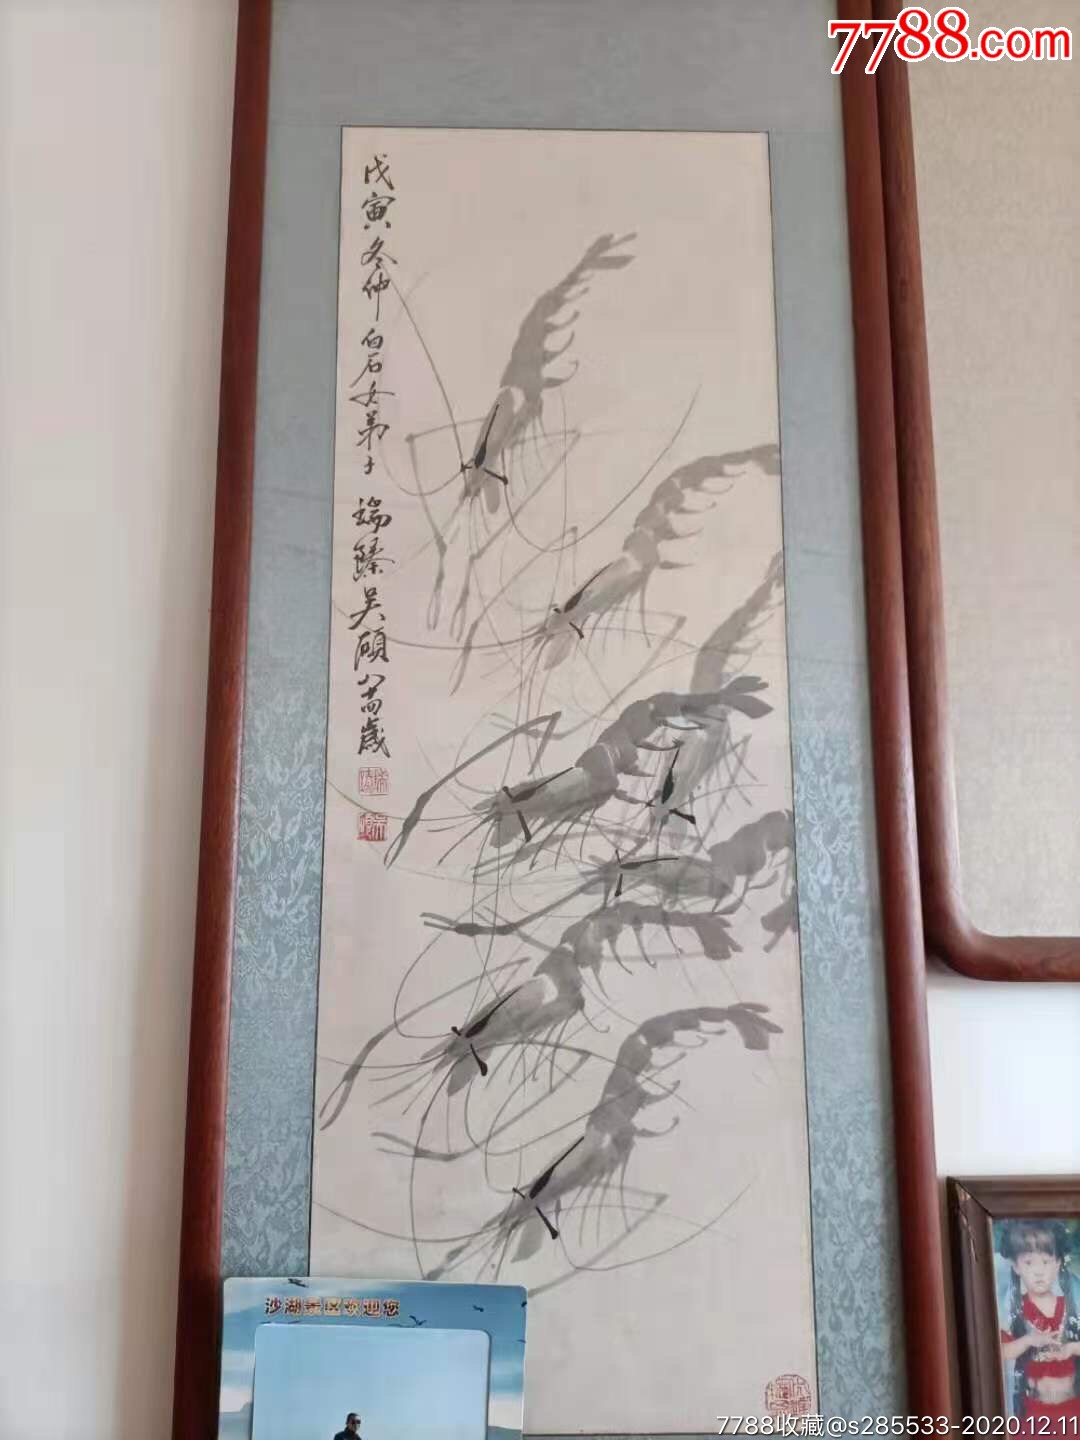 7788.com
戊寅冬仲白石女弟子瑞臻吴頤八十歲
沙湖景区欢迎您
7788收藏@s285533-2020.12.11